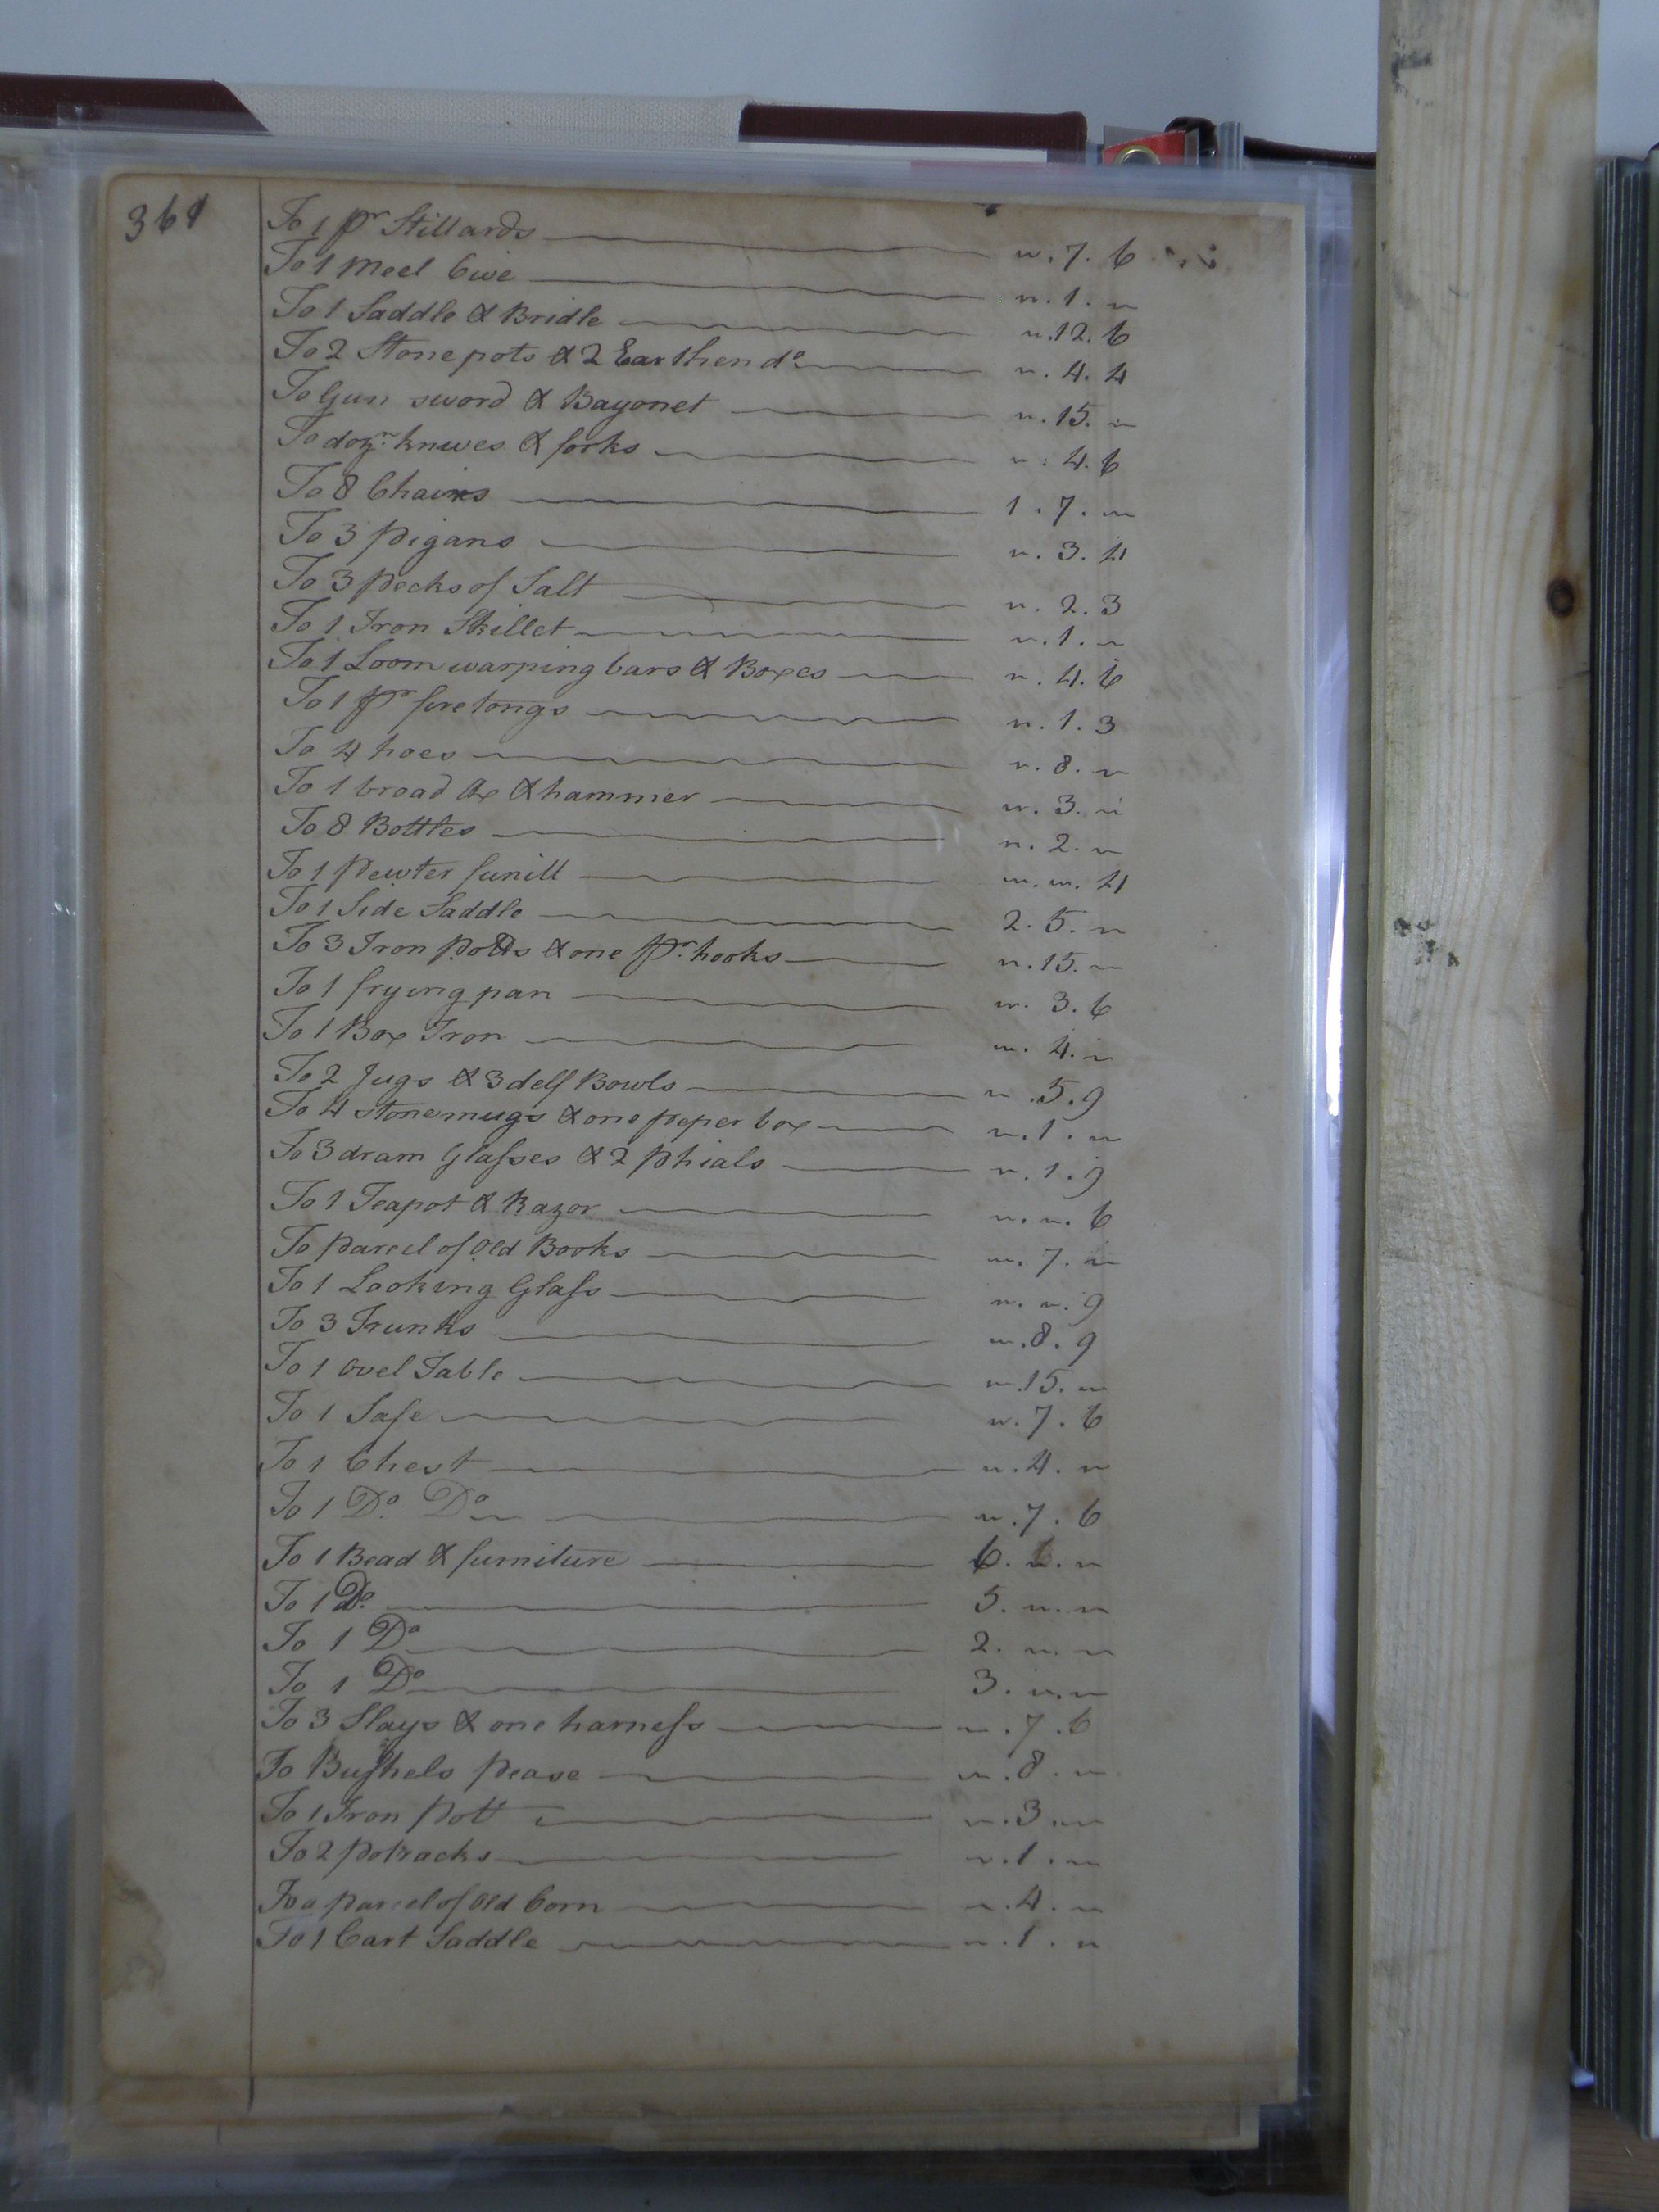 361
To 1 pr Stillards n. 7. 6
To 1 Meel Cive n. 1. n
To 1 Saddle & Bridle n. 12. 6
To 2 Stone pots & 2 Earthen do n. 4. 4
To Gun sword & Bayonet n. 15. n
To dozn knives & forks n. 4. 6
To 8 Chairs 1. 7. n
To 3 pigans n. 3. 4
To 3 pecks of Salt n. 2. 3
To 1 Iron Skillet n. 1. n
To 1 Loom warping bars & Boxes n. 4. 6
To 1 pr fire tongs n. 1. 3
To 4 hoes n. 8. n
To 1 broad Ax & hammer n. 3. n
To 8 Bottles n. 2. n
To 1 Pewter funill n. n. 4
To 1 Side Saddle 2. 5. n
To 3 Iron potts & one pr. hooks n. 15. n
To 1 frying pan n. 3. 6
To 1 Box Iron n. 4. n
To 2 Jugs & 3 delf Bowls n. 5. 9
To 4 stone mugs & one peper box n. 1. n
To 3 dram Glasses & 2 phials n. 1. 9
To 1 Teapot & Razor n. n. 6
To parcel of Old Books n. 7. n
To 1 Looking Glass n. n. 9
To 3 Trunks n. 8. 9
To 1 Ovel Table n. 15. n
To 1 Safe n. 7. 6
To 1 Chest n. 4. n
To 1 Do. Do n. 7. 6
To 1 Bead & furniture 6. n. n
To 1 Do. 5. n. n
To 1 Do 2. n. n
To 1 Do 3. n. n
To 3 Slays & one harness n. 7. 6
To Bushels pease n. 8. n
To 1 Iron pott n. 3. n
To 2 potracks n. 1. n
To a parcel of Old Corn n. 4. n
To 1 Cart Saddle n. 1. n